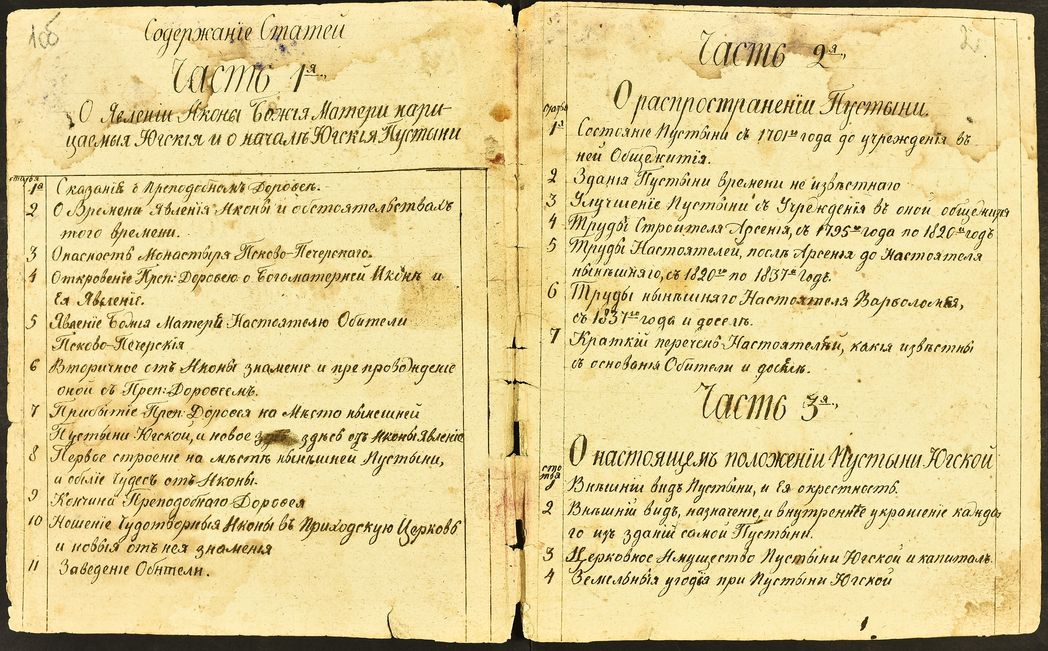 106
Содержаніе Статей
Часть 1я.,
О Явленіи Иконы Божія Матери нари-
цаемыя Югскія и о началѣ Югскія Пустыни
статья
1я Сказаніе о Преподобномъ Доровеѣ.
2 О Времени Явленія Иконы и обстоятельствахъ
того времени.
3 Опасность Монастыря Псково-Печерскаго.
4 Откровеніе Преп: Доровею о Богоматерней Иконѣ и
Ея Явленіе.
5 Явленіе Божія Матери Настоятелю Обители
Псково-Печерскія
6 Вторичное отъ Иконы знаменіе и препровожденіе
оной съ Преп: Доровеемъ.
7 Прибытіе Преп: Доровея на Мѣсто нынѣшней
Пустыни Югской, и новое здѣсь отъ Иконы Явленіе
8 Первое строеніе на мѣстѣ нынѣшней Пустыни,
и обиліе Чудесъ отъ Иконы.
9 Кончина Преподобнаго Доровея
10 Ношеніе Чудотворныя Иконы въ Приходскую Церковь
и новыя отъ нея знаменія
11 Заведеніе Обители.
2
Часть 2я.,
О распространеніи Пустыни.
статья
1я Состояніе Пустыни съ 1701го года до учрежденія въ
ней Общежитія.
2 Зданія Пустыни времени не извѣстнаго
3 Улучшеніе Пустыни съ Учрежденія въ оной общежитія
4 Труды Строителя Арсенія, съ 1795го года по 1820й годъ
5 Труды Настоятелей, послѣ Арсенія до Настоятеля
нынѣшняго, съ 1820го по 1837й годъ.
6 Труды нынѣшняго Настоятеля Варѳоломея,
съ 1837го года и доселѣ.
7 Краткій перечень Настоятелей, какія извѣстны
съ основанія Обители и доселѣ.
Часть 3я.,
О настоящемъ положеніи Пустыни Югской
1 Внѣшній видъ Пустыни, и Ея окрестность.
2 Внѣшній видъ, назначеніе, и внутреннее украшеніе каждо
го изъ зданій самой Пустыни.
3 Церковное Имущество Пустыни Югской и капиталъ.
4 Земельныя угодія при Пустыни Югской